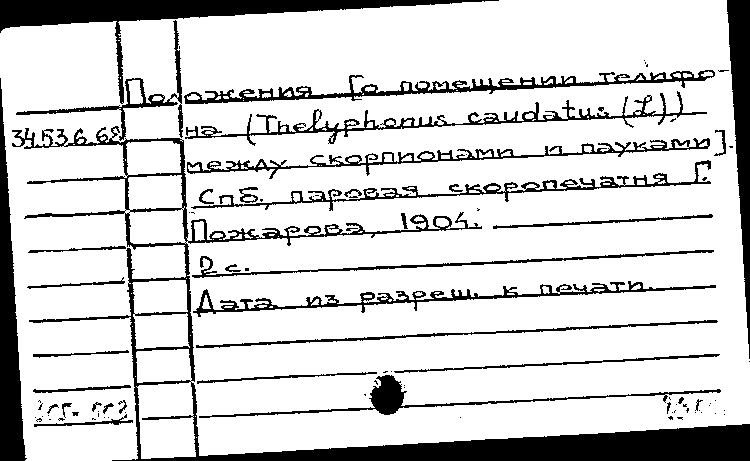 Положения [о помещении телифо-
34.53.6.62 на (Thelyphonus caudatus (L))
между скорпионами и пауками].
Спб., паровая скоропечатня Г.
Пожарова, 1904.
2 с.
Дата из разреш. к печати.